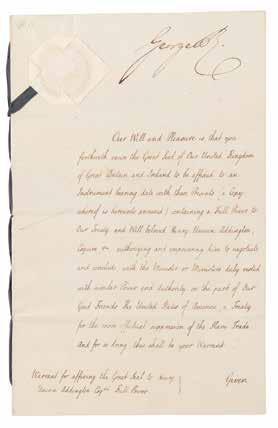 George R.
Our Will and Pleasure is that you
forthwith cause the Great Seal of Our United Kingdom
of Great Britain and Ireland to be affixed to an
Instrument bearing date with these Presents (a Copy
whereof is hereunto annexed) containing a Full Power to
Our Trusty and Well beloved Henry Unwin Addington,
Esquire &c authorizing and empowering him to negotiate
and conclude with the Minister or Ministers duly vested
with similar Power and Authority on the part of Our
Good Friends The United States of America, a Treaty
for the more effectual suppression of the Slave Trade
And for so doing this shall be your Warrant.
Given
Warrant for affixing the Great Seal to Henry
Unwin Addington Esqre Full Power